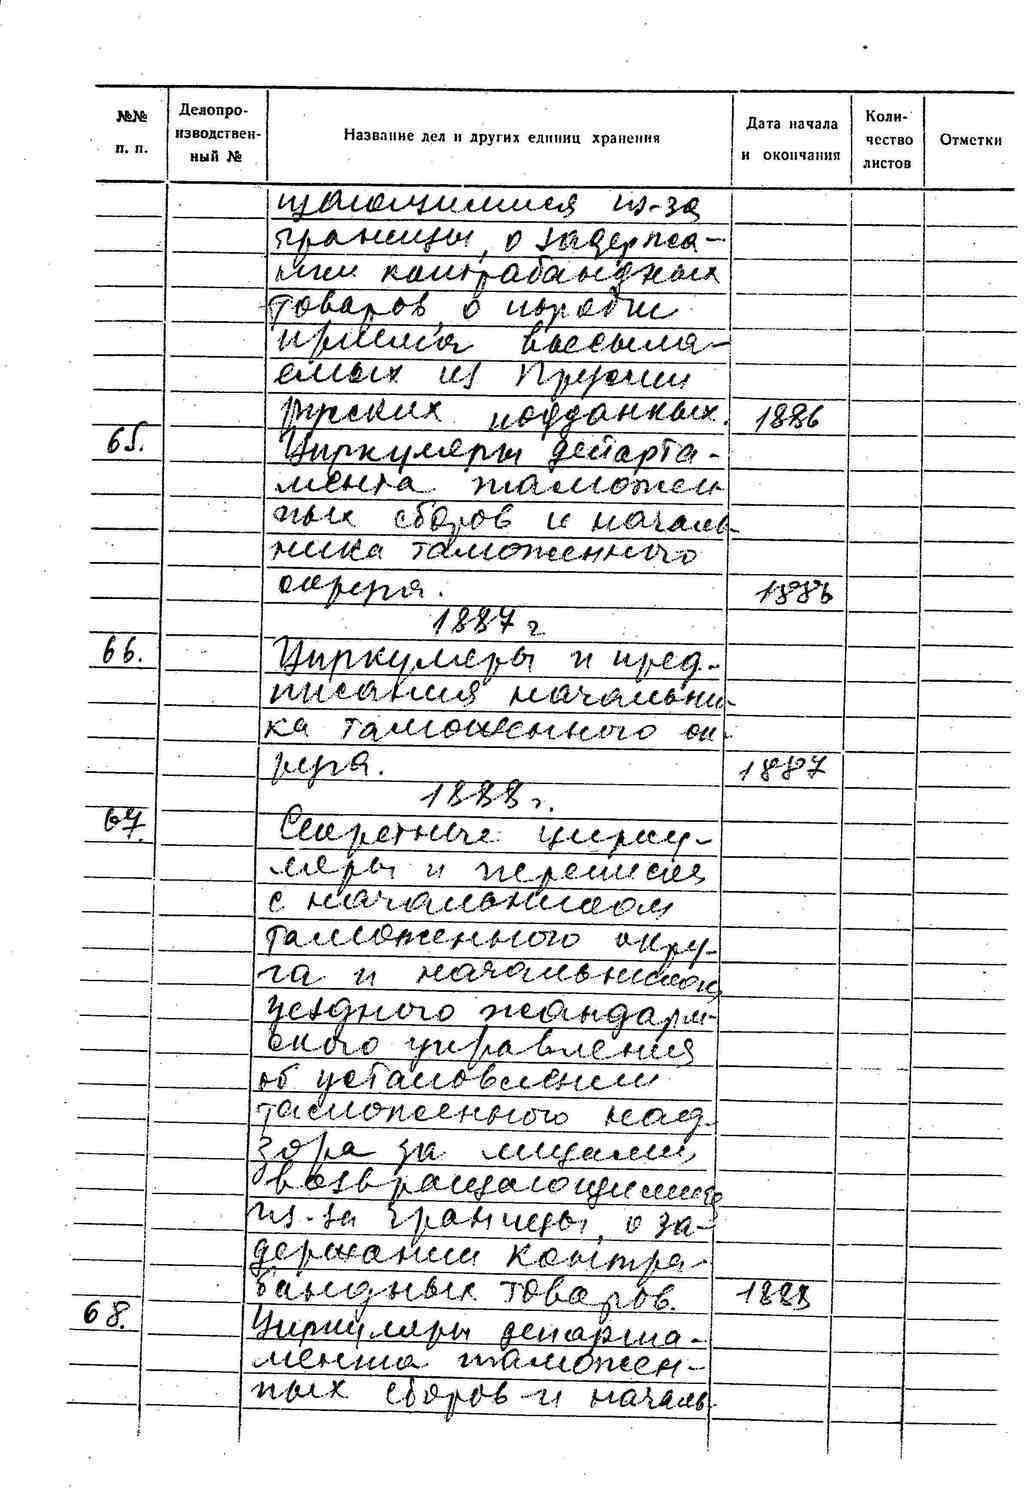 №№ п. п. Делопроизводственный № Название дел и других единиц хранения Дата начала и окончания Количество листов Отметки
щающимися из-за
границы, о задержа-
нии контрабандных
товаров, о порядке
приема высыла-
емых из Пруссии
русских подданных. 1886
65. Циркуляры департа-
мента таможен
ных сборов и началь-
ника таможенного
округа. 1886
1887 г.
66. Циркуляры и пред-
писания начальни-
ка таможенного ок-
руга. 1887
1888 г.
67. Секретные цирку-
ляры и переписка
с начальником
таможенного окру-
га и начальником
уездного жандарм-
ского управления
об установлении
таможенного над-
зора за лицами,
возвращающимися
из-за границы, о за-
держании контра-
бандных товаров. 1888
68. Циркуляры департа-
мента таможен-
ных сборов и началь-